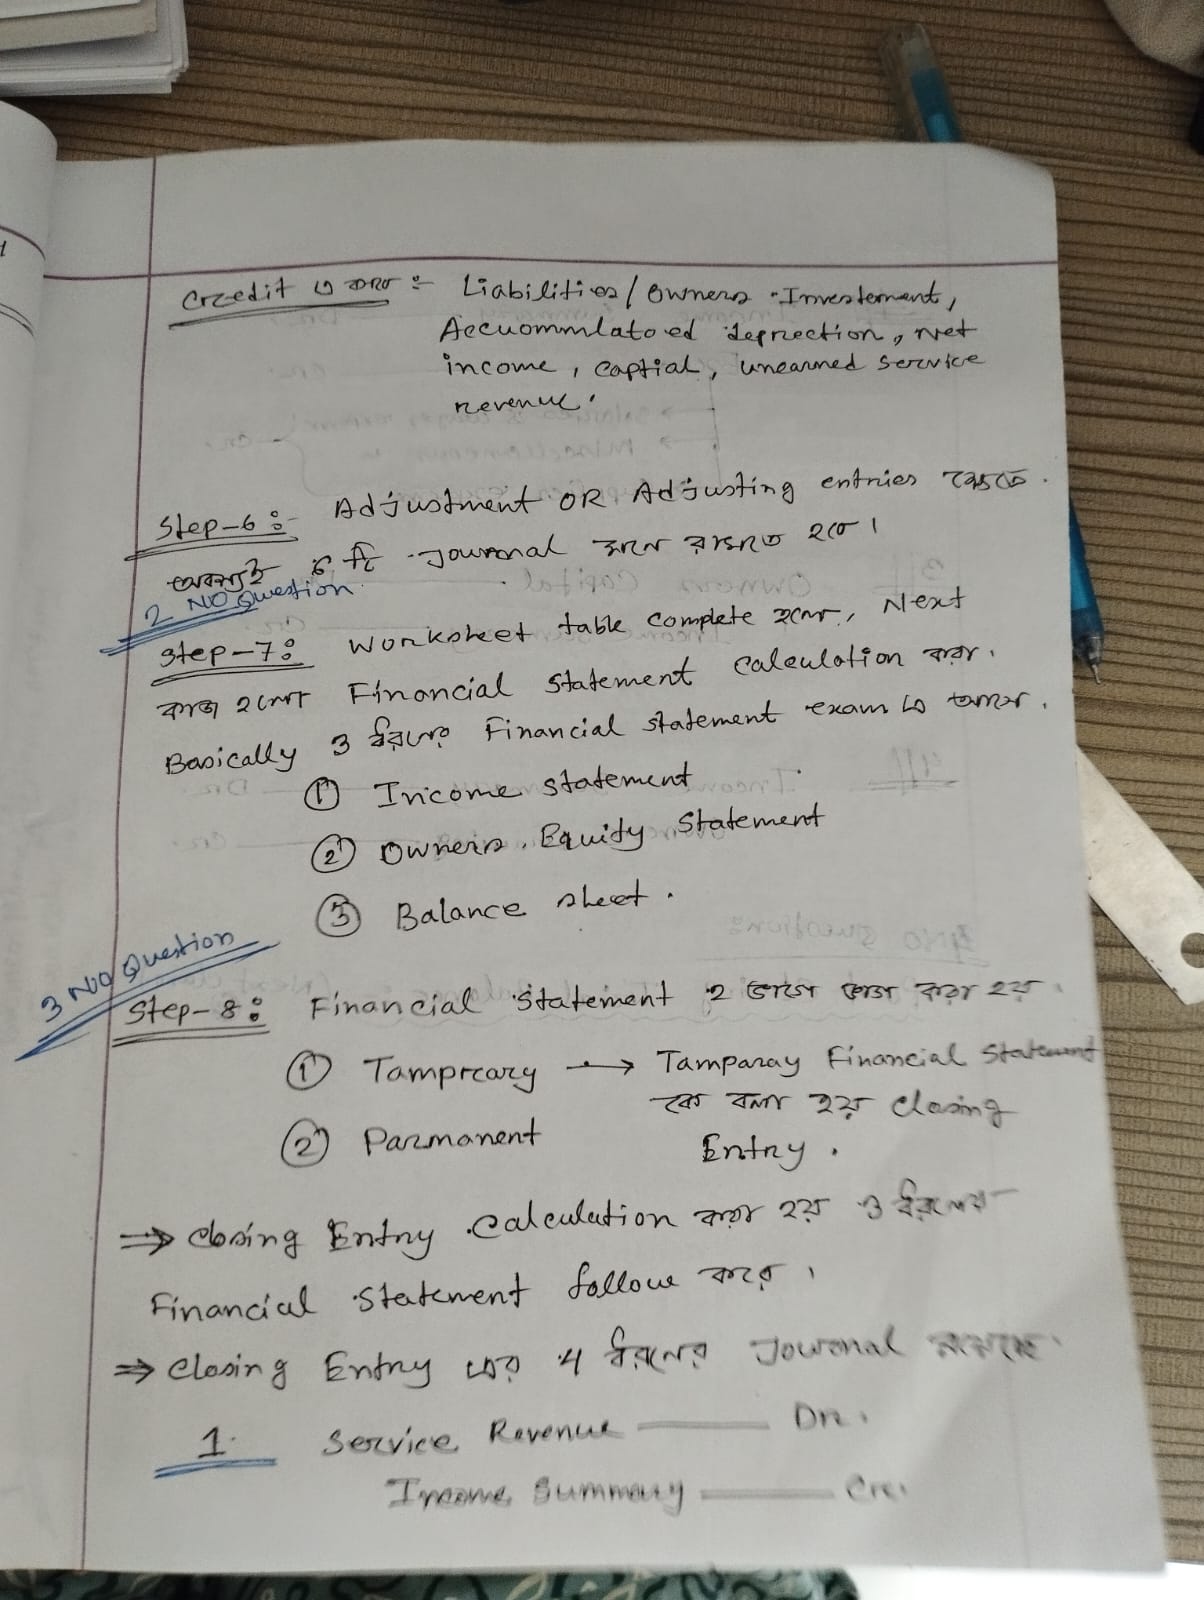 Crzedit এ বসবে :- Liabilities/Owners Investement,
Accuommlatoed depriection, net
income, captial, unearned service
revenue.
Step-6 :- Adjustment OR Adjusting entries করতে
অবশ্যই ৬ টি Jouronal মনে রাখতে হবে।
2 NO Question
Step-7: Worksheet table complete হলে, Next
কাজ হলো Financial Statement calculation করা।
Basically 3 ধরনের Financial statement exam এ আসে।
① Income statement
② Owners Equity Statement
③ Balance sheet.
3 NO Question
Step-8: Financial Statement 2 ভাগে ভাগ করা হয়।
① Tamprcary → Tamparay Financial Statement
কে বলা হয় Closing
② Parmanent Entry.
⇒ Closing Entry calculation করা হয় 3 ধরনের
Financial Statement follow করে।
⇒ Closing Entry এর 4 ধরনের Jouronal
1. Service Revenue —— Dr.
Income Summary —— Cr.